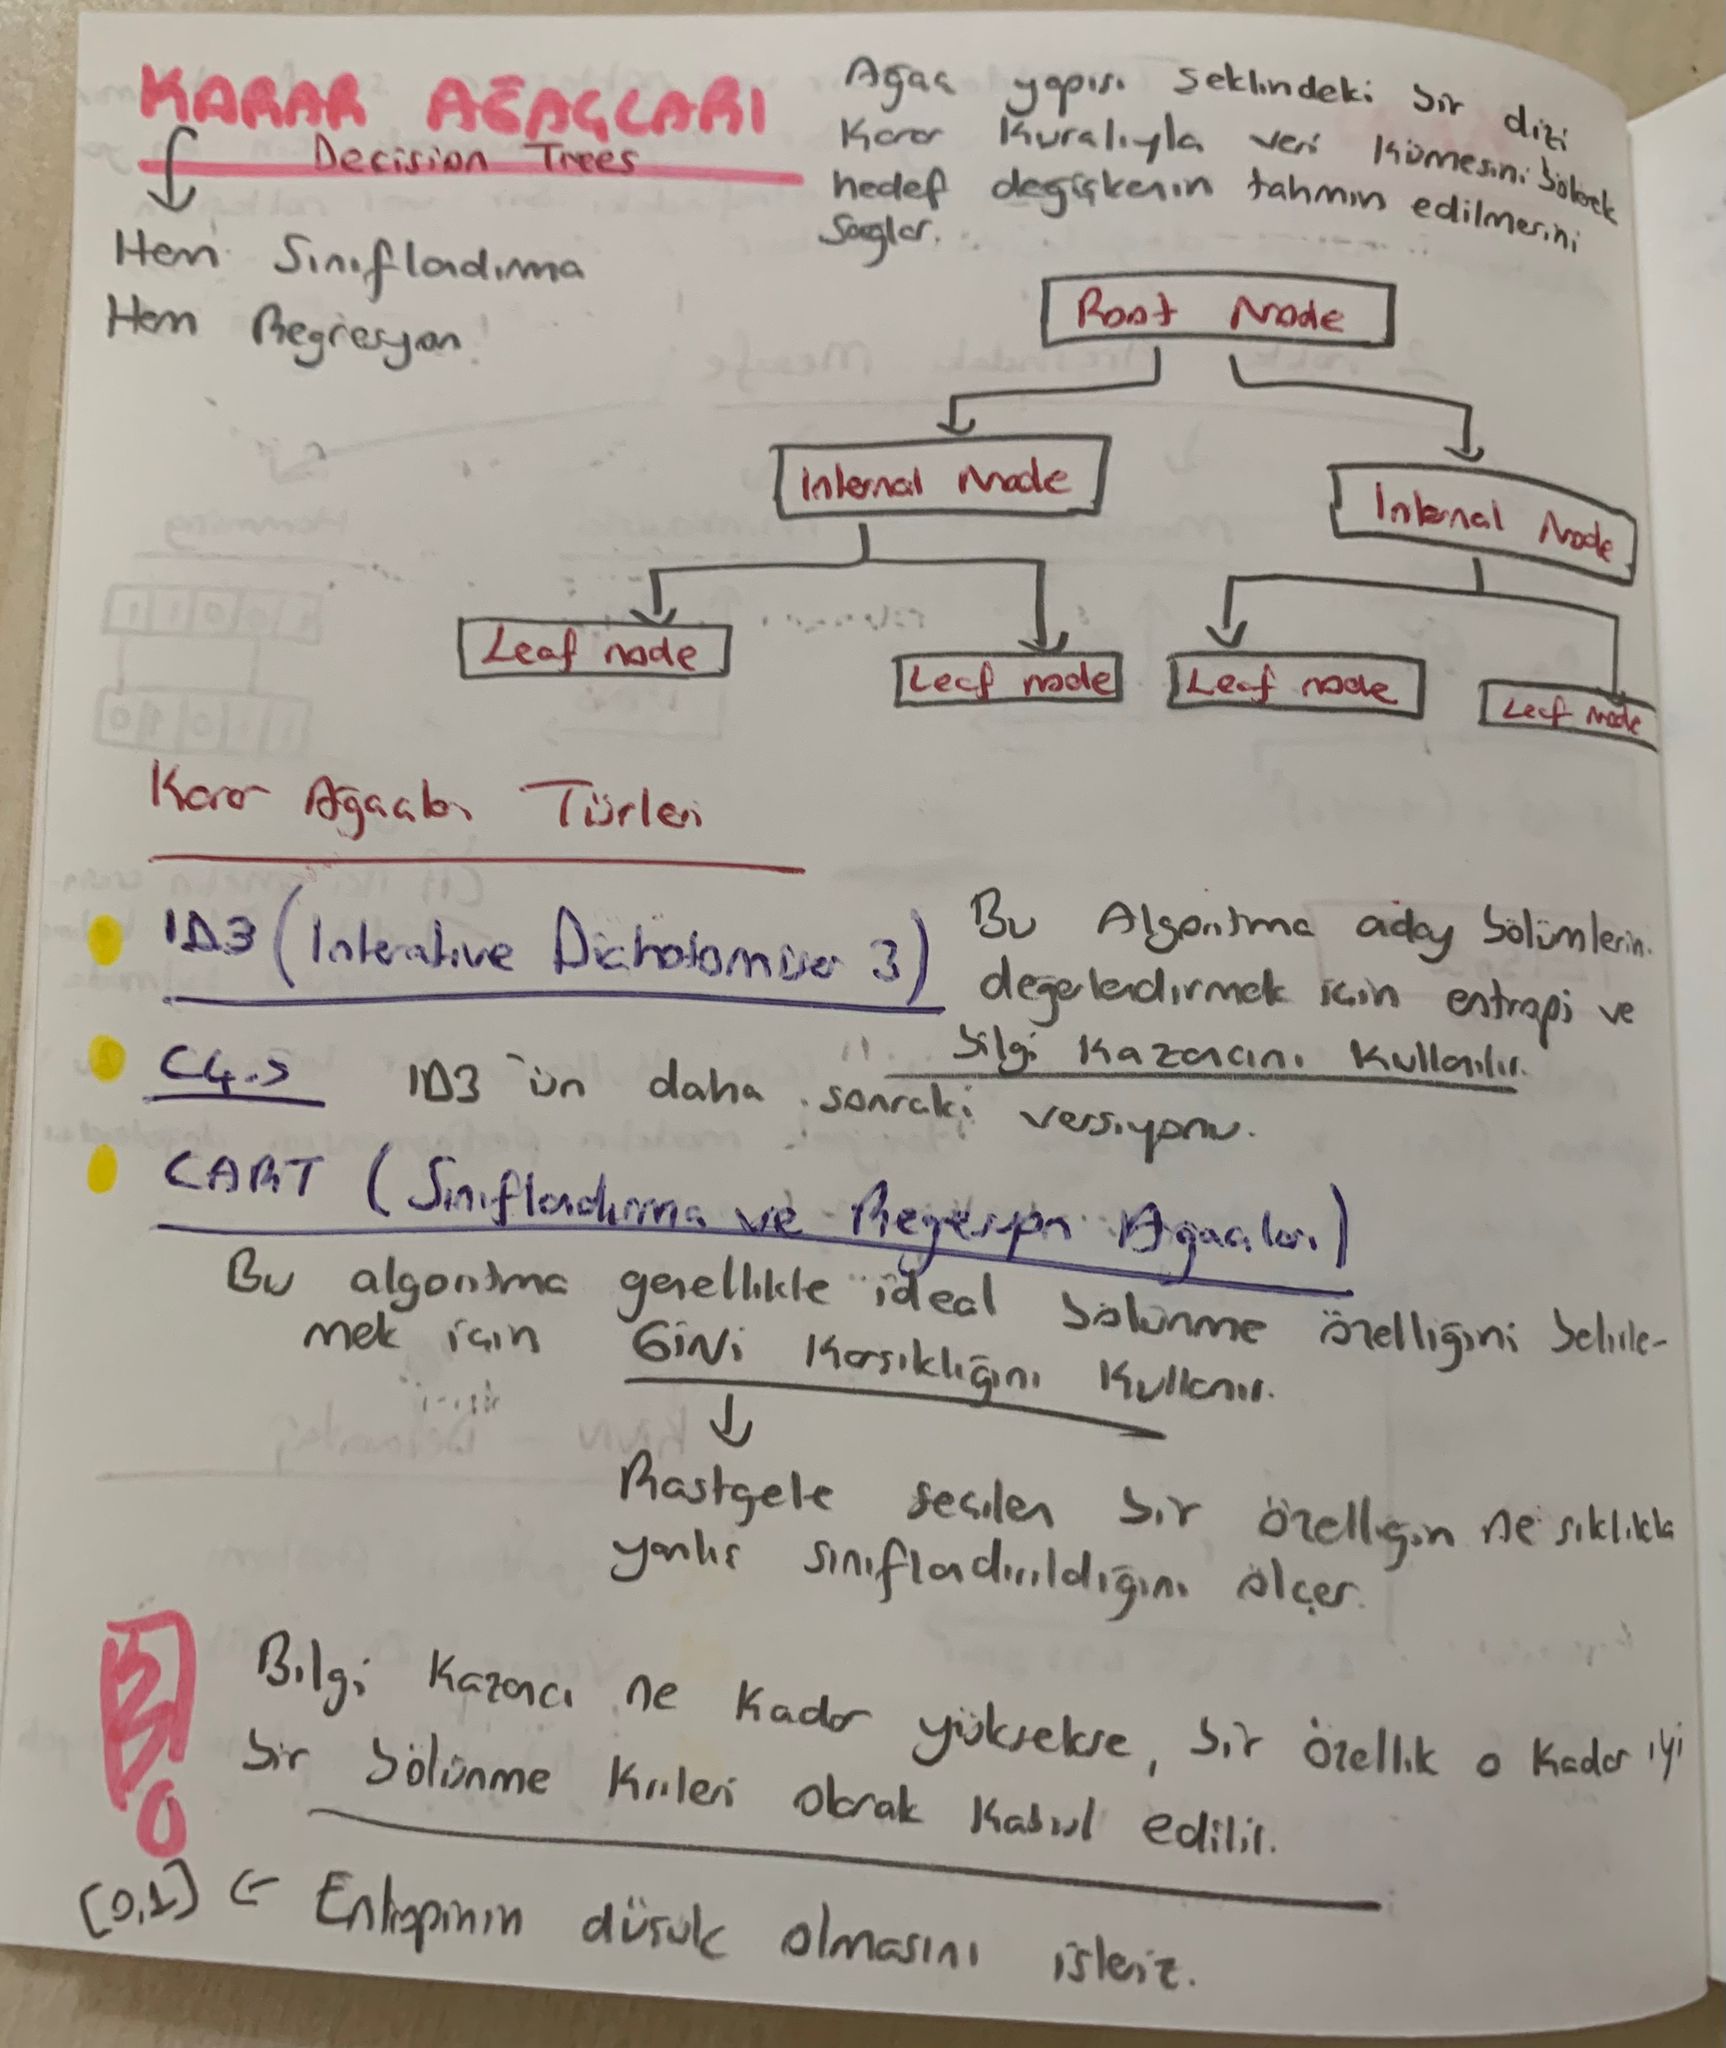 KARAR AĞAÇLARI
Decision Trees
Hem Sınıflandırma
Hem Regresyon
Ağaç yapısı şeklindeki bir dizi
Karar Kuralıyla veri kümesini bölerek
hedef değişkenin tahmin edilmesini
sağlar.
Root Node
Internal Node
Internal Node
Leaf node
Leaf node
Leaf node
Leaf node
Karar Ağaçları Türleri
ID3 (Interative Dichotomiser 3)
Bu Algoritma aday bölümlerin
değerlendirmek için entropi ve
bilgi Kazancını Kullanılır.
C4.5 ID3'ün daha sonraki versiyonu.
CART (Sınıflandırma ve Regresyon Ağaçları)
Bu algoritma genellikle ideal bölünme özelliğini belirle-
mek için GİNİ Karışıklığını Kullanır.
Rastgele seçilen bir özelliğin ne sıklıkla
yanlış sınıflandırıldığını ölçer.
Bilgi Kazancı ne Kadar yüksekse, bir özellik o Kadar iyi
bir bölünme Kriteri olarak Kabul edilir.
[0,1] ← Entropinin düşük olmasını isteriz.